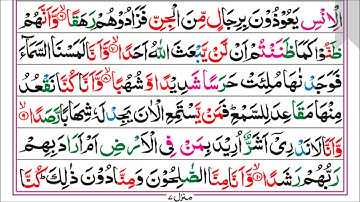 الْاِنْسِ يَعُوْذُوْنَ بِرِجَالٍ مِّنَ الْجِنِّ فَزَادُوْهُمْ رَهَقًا ۙ﴿۶﴾ وَّاَنَّهُمْ
ظَنُّوْا كَمَا ظَنَنْتُمْ اَنْ لَّنْ يَّبْعَثَ اللّٰهُ اَحَدًا ۙ﴿۷﴾ وَّاَنَّا لَمَسْنَا السَّمَآءَ
فَوَجَدْنٰهَا مُلِئَتْ حَرَسًا شَدِيْدًا وَّشُهُبًا ۙ﴿۸﴾ وَّاَنَّا كُنَّا نَقْعُدُ
مِنْهَا مَقَاعِدَ لِلسَّمْعِ ؕ فَمَنْ يَّسْتَمِعِ الْاٰنَ يَجِدْ لَهٗ شِهَابًا رَّصَدًا ۙ﴿۹﴾
وَّاَنَّا لَا نَدْرِيْۤ اَشَرٌّ اُرِيْدَ بِمَنْ فِي الْاَرْضِ اَمْ اَرَادَ بِهِمْ
رَبُّهُمْ رَشَدًا ۙ﴿۱۰﴾ وَّاَنَّا مِنَّا الصّٰلِحُوْنَ وَمِنَّا دُوْنَ ذٰلِكَ ؕ كُنَّا
منزل ۷